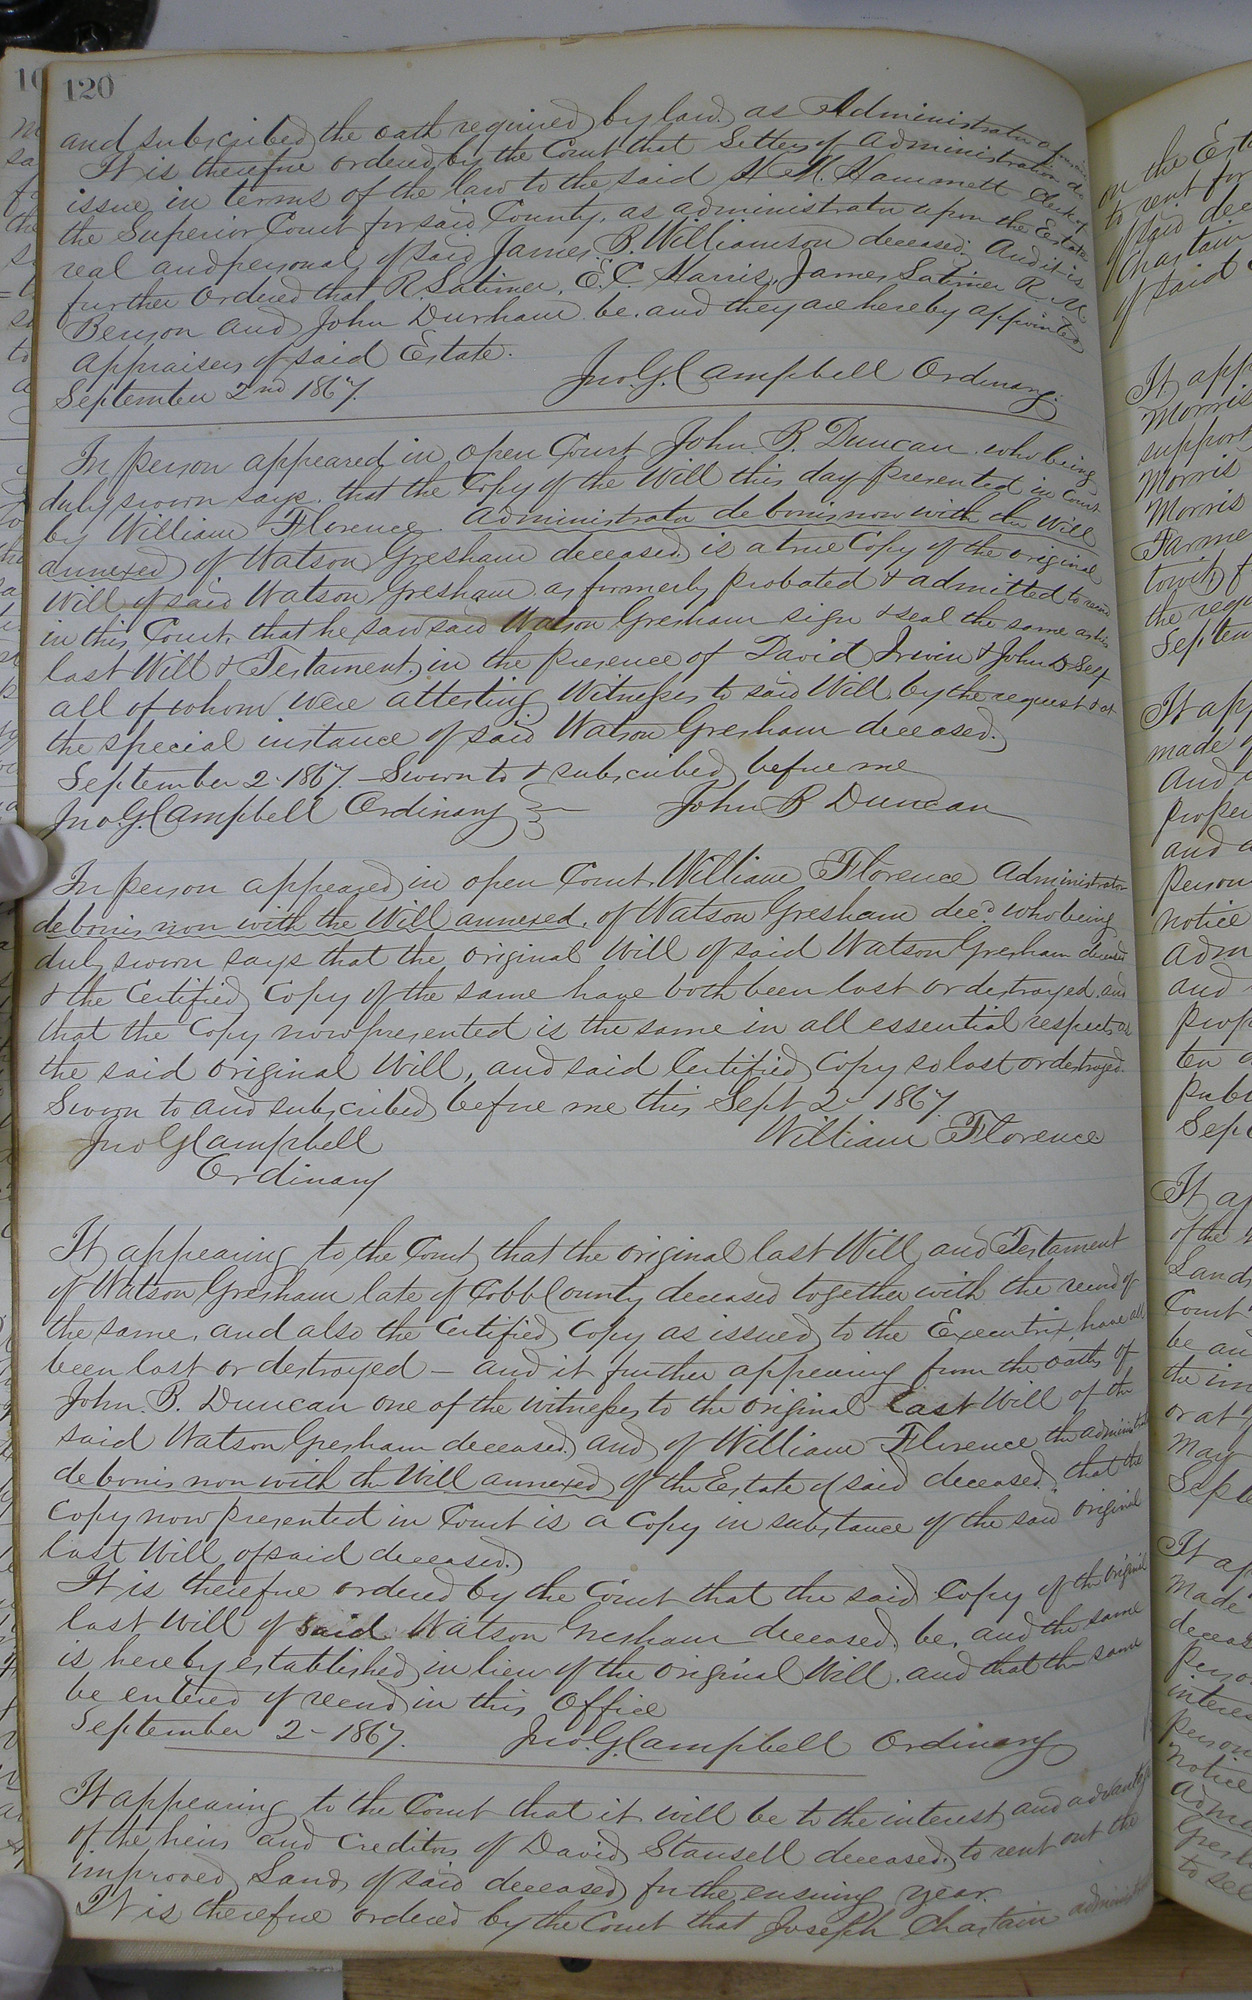 120
and subscribed the oath required by law as Administrator
It is therefore ordered by the Court that Letters of Administration do
issue in terms of the law to the said H. M. Hammett Clerk of
the Superior Court for said County, as administrator upon the Estate
real and personal of said James B. Williamson deceased. And it is
further Ordered that R Latimer, E. C. Harris, James Latimer R M
Benson and John Durham be, and they are hereby appointed
appraisers of said Estate.
September 2nd 1867. Jno. G. Campbell Ordinary.
In person appeared in open Court John B. Duncan who being
duly sworn says that the Copy of the Will this day presented in Court
by William Florence. administrator de bonis non with the Will
annexed of Watson Gresham deceased is a true Copy of the original
Will of said Watson Gresham as formerly probated & admitted to record
in this Court, that he saw said Watson Gresham sign & seal the same as his
last Will & Testament, in the presence of David Irwin & John D Self
all of whom were attesting Witnesses to said Will by the request & at
the special instance of said Watson Gresham deceased.
September 2 - 1867. Sworn to & subscribed before me
Jno. G. Campbell Ordinary John B Duncan
In person appeared in open Court William Florence Administrator
de bonis non with the Will annexed, of Watson Gresham decd who being
duly sworn says that the original Will of said Watson Gresham deceased
& the Certified Copy of the same have both been lost or destroyed, and
that the Copy now presented is the same in all essential respects as
the said original Will, and said Certified Copy so lost or destroyed.
Sworn to and subscribed before me this Sept 2 - 1867.
Jno G Campbell William Florence
Ordinary
It appearing to the Court that the original last Will and Testament
of Watson Gresham late of Cobb County deceased together with the record of
the same, and also the Certified Copy as issued to the Executrix, have all
been lost or destroyed - and it further appearing from the oaths of
John B. Duncan one of the witnesses to the original Last Will of the
said Watson Gresham deceased and of William Florence the administrator
de bonis non with the Will annexed of the Estate of said deceased, that the
Copy now presented in Court is a Copy in substance of the said original
last Will of said deceased.
It is therefore ordered by the Court that the said Copy of the original
last Will of said Watson Gresham deceased be, and the same
is hereby established in lieu of the original Will. and that the same
be entered of record in this Office
September 2 - 1867. Jno. G. Campbell Ordinary
It appearing to the Court that it will be to the interest and advantage
of the heirs and Creditors of David Stansell deceased, to rent out the
improved Lands of said deceased for the ensuing year.
It is therefore ordered by the Court that Joseph Chastain administrator
on the Est
to rent for
of said dec
Chastain
of said
It app
Morris
support
Morris
Morris
Farme
towit, f
the requ
Septem
It app
made
And
proper
and a
person
notice
adm
and
prop
ten
publ
Sep
It ap
of the
Lands
Court
be an
the im
or at
May
Septe
It ap
made
deceas
perso
interes
person
notice
admi
to sel